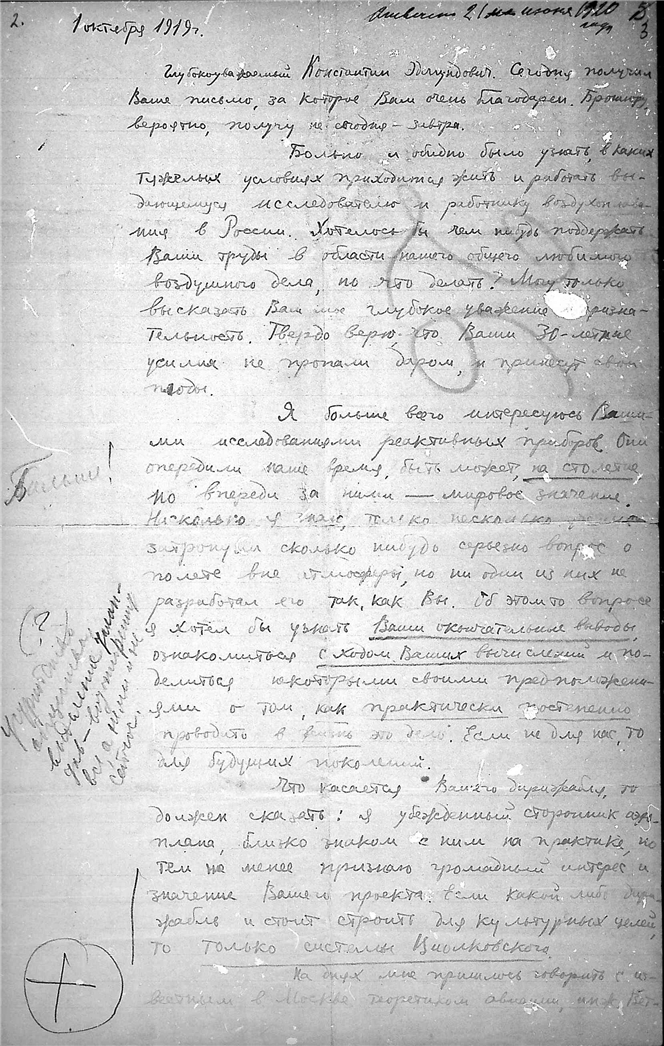 2.
1 октября 1919г.
Отвечено 21 июня 1920 года
3
Глубокоуважаемый Константин Эдуардович. Сегодня получил
Ваше письмо, за которое Вам очень благодарен. Брошюру,
вероятно, получу не сегодня – завтра.
Больно и обидно было узнать, в каких
тяжелых условиях приходится жить и работать вы-
дающемуся исследователю и работнику воздухоплава-
ния в России. Хотелось бы чем нибудь поддержать
Ваши труды в области нашего общего любимого
воздушного дела, но что делать? Могу только
высказать Вам мое глубокое уважение и призна-
тельность. Твердо верю, что Ваши 30-летние
усилия не пропали даром, и принесут свои
плоды.
Я больше всего интересуюсь Ваши-
ми исследованиями реактивных приборов. Они
опередили наше время, быть может, на столетие
но впереди за ними — мировое значение.
Насколько я знаю, только несколько
затронули сколько нибудь серьезно вопрос о
полете вне атмосферы, но ни один из них не
разработал его так, как Вы. Об этом то вопросе
я хотел бы узнать Ваши окончательные выводы,
ознакомиться с ходом Ваших вычислений и по-
делиться некоторыми своими предположени-
ями о том, как практически постепенно
проводить в жизнь это дело. Если не для нас, то
для будущих поколений.
Что касается Вашего дирижабля, то
должен сказать: я убежденный сторонник аэро-
плана, близко знаком с ним на практике, но
тем не менее признаю громадный интерес и
значение Вашего проекта. Если какой либо дири-
жабль и стоит строить для культурных целей,
то только системы Циолковского.
На днях мне пришлось говорить с из-
вестным в Москве теоретиком авиации, инж. Вет-
(?)